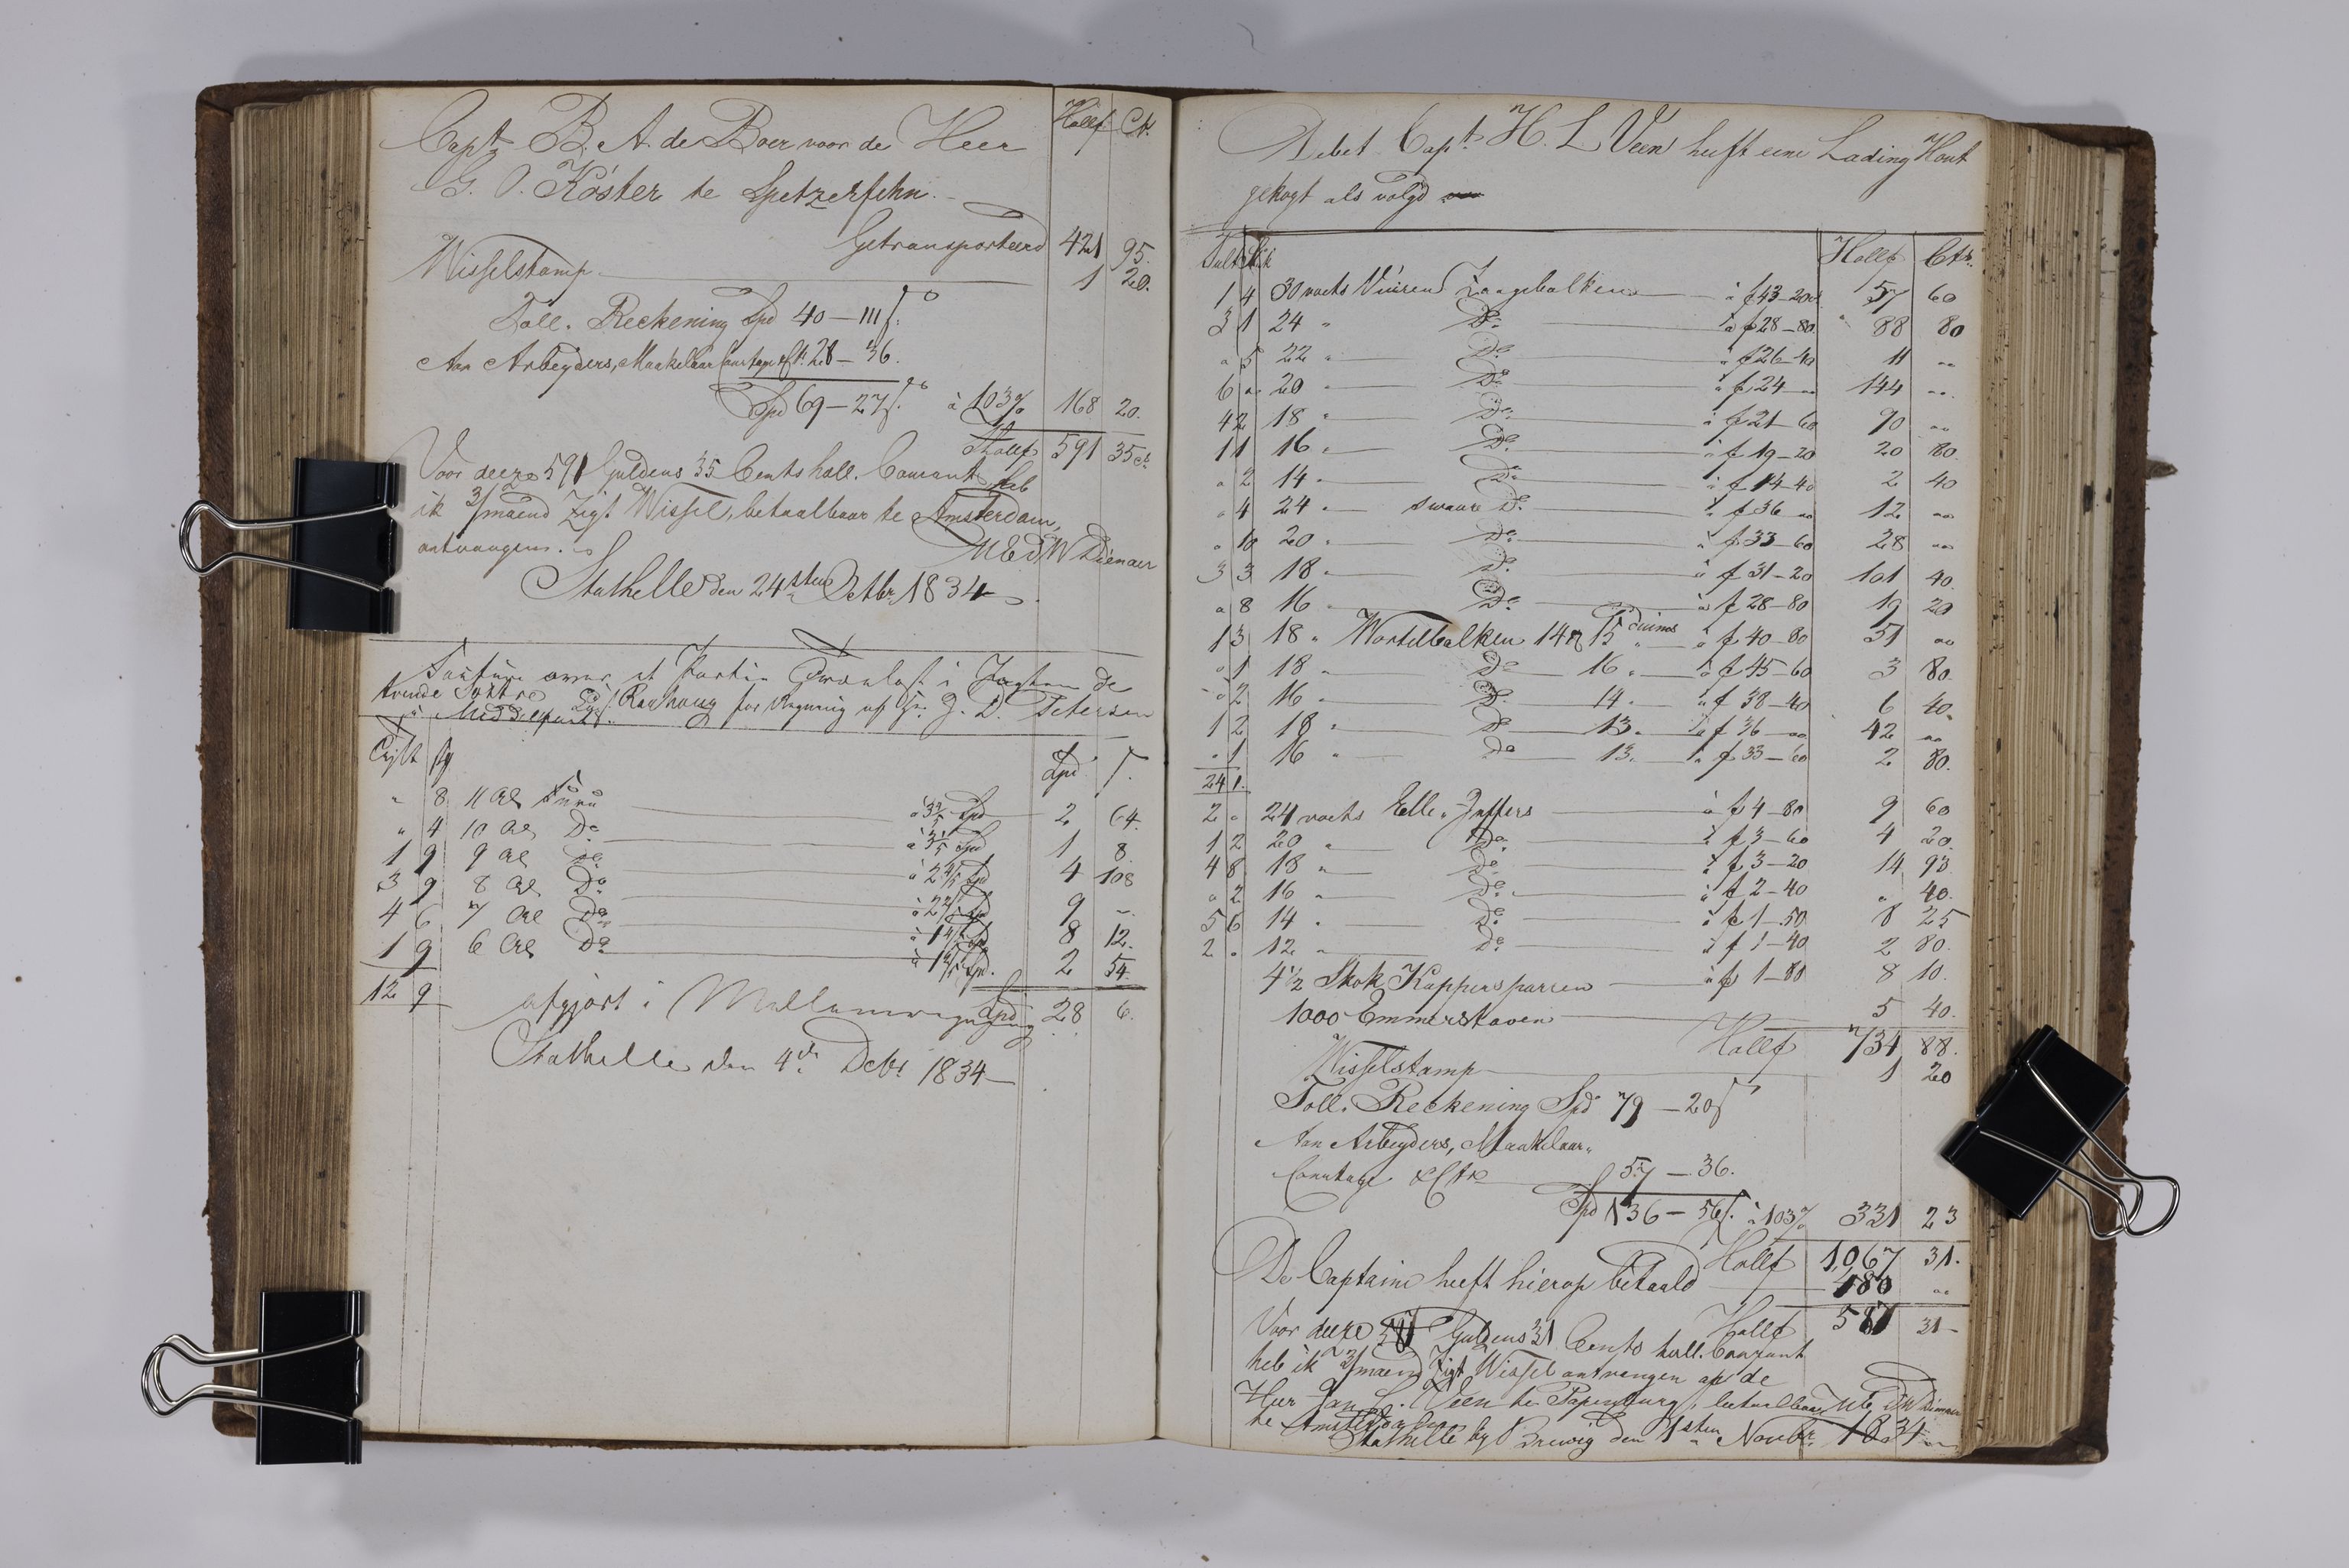 Capt. B. A. de Boer voor de Heer Hollf Ct.
G. O. Köster te Spetzerfehn.
Getransporteerd 421 95.
Wisselstamp 1 20.
Toll. Reckening Spd 40 — 111 ſ.
Aan Arbeyders, Maakelaar Courtage &Ct. 28 — 36.
Spd 69 — 27 ſ. à 103% 168 20.
Hollf 591 35 ct.
Voor deeze 591 Guldens 35 Cents holl. Courant heb
ik 3/maend Zigt Wissel, betaalbaar te Amsterdam,
ontvangen.
UEdW Dienaer
Stathelle den 24sten Octbr. 1834

over et Partie i Jagten de
trende Søstre for Regning af Hr. J. D. Petersen
Tylt Spd ſ.
" 8 11 Al Furu à 3 2/5 Spd 2 64.
" 4 10 Al Do à 3 1/5 Spd 1 8.
1 9 9 Al Do à 2 4/5 Spd 4 108
3 9 8 Al Do à 2 2/5 Spd 9 "
4 6 7 Al Do à 1 4/5 Spd 8 12.
1 9 6 Al Do 2 54.
12 9 Spd 28 6.
afgjort i Mellemregning
Stathelle den 4de Debr 1834

Debet Capt. H. L. Veen heeft eene Lading Hout
gekogt als volgd
Tult Stk Hollf Cts.
1 4 30 voets Vuiren Zaagebalken à f 43—20 57 60
3 1 24 " Do à f 28—80 88 80
" 5 22 " Do à f 26—40 11 "
6 " 20 " Do à f 24 — " 144 "
4 2 18 " Do à f 21—60 90 "
1 1 16 " Do à f 19—20 20 80.
" 2 14 " Do à f 14—40 2 40
" 4 24 " swaare Do à f 36 " 12 "
" 10 20 " Do à f 33—60 28 "
3 3 18 " Do à f 31—20 101 40.
" 8 16 " Do à f 28—80 19 20
1 3 18 " Wortelbalken 14 à 15 duims à f 40—80 51 "
" 1 18 " Do 16 " à f 45—60 3 80.
" 2 16 " Do 14 " à f 38—40 6 40.
1 2 18 " Do 13 " à f 36 — " 42 "
" 1 16 " Do 13 " à f 33—60 2 80.
24 1.
2 " 24 voets Elle. Juffers à f 4—80 9 60
1 2 20 " Do à f 3—60 4 20.
4 8 18 " Do à f 3—20 14 93.
" 2 16 " Do à f 2—40 " 40.
5 6 14 " Do à f 1—50 8 25
2 " 12 " Do à f 1—40 2 80.
4 1/2 Skok Kappersparren à f 1—80 8 10.
1000 Emmerstaven 5 40.
Hollf 734 88.
Wisselstamp 1 20
Toll. Reckening Spd 79 — 20 ſ
Aan Arbeyders, Maakelaar
Courtage &Ctr 57 — 36.
Spd 136 — 56 ſ. à 103% 331 23
Hollf 1,067 31.
De Captain heeft hierop betaald 480 "
Hollf 587 31
Voor deeze 587 Guldens 31 Cents holl. Courant
heb ik 3/maend Zigt Wissel ontvangen op de
Heer Jan L. Veen te Papenburg, betaalbaar UEdW Dienaer
te Amsterdam
Stathelle by Brewig den 1sten Novbr. 1834